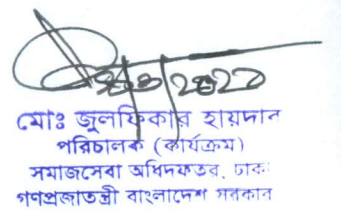 মোঃ জুলফিকার হায়দার
পরিচালক (কার্যক্রম)
সমাজসেবা অধিদফতর, ঢাকা
গণপ্রজাতন্ত্রী বাংলাদেশ সরকার